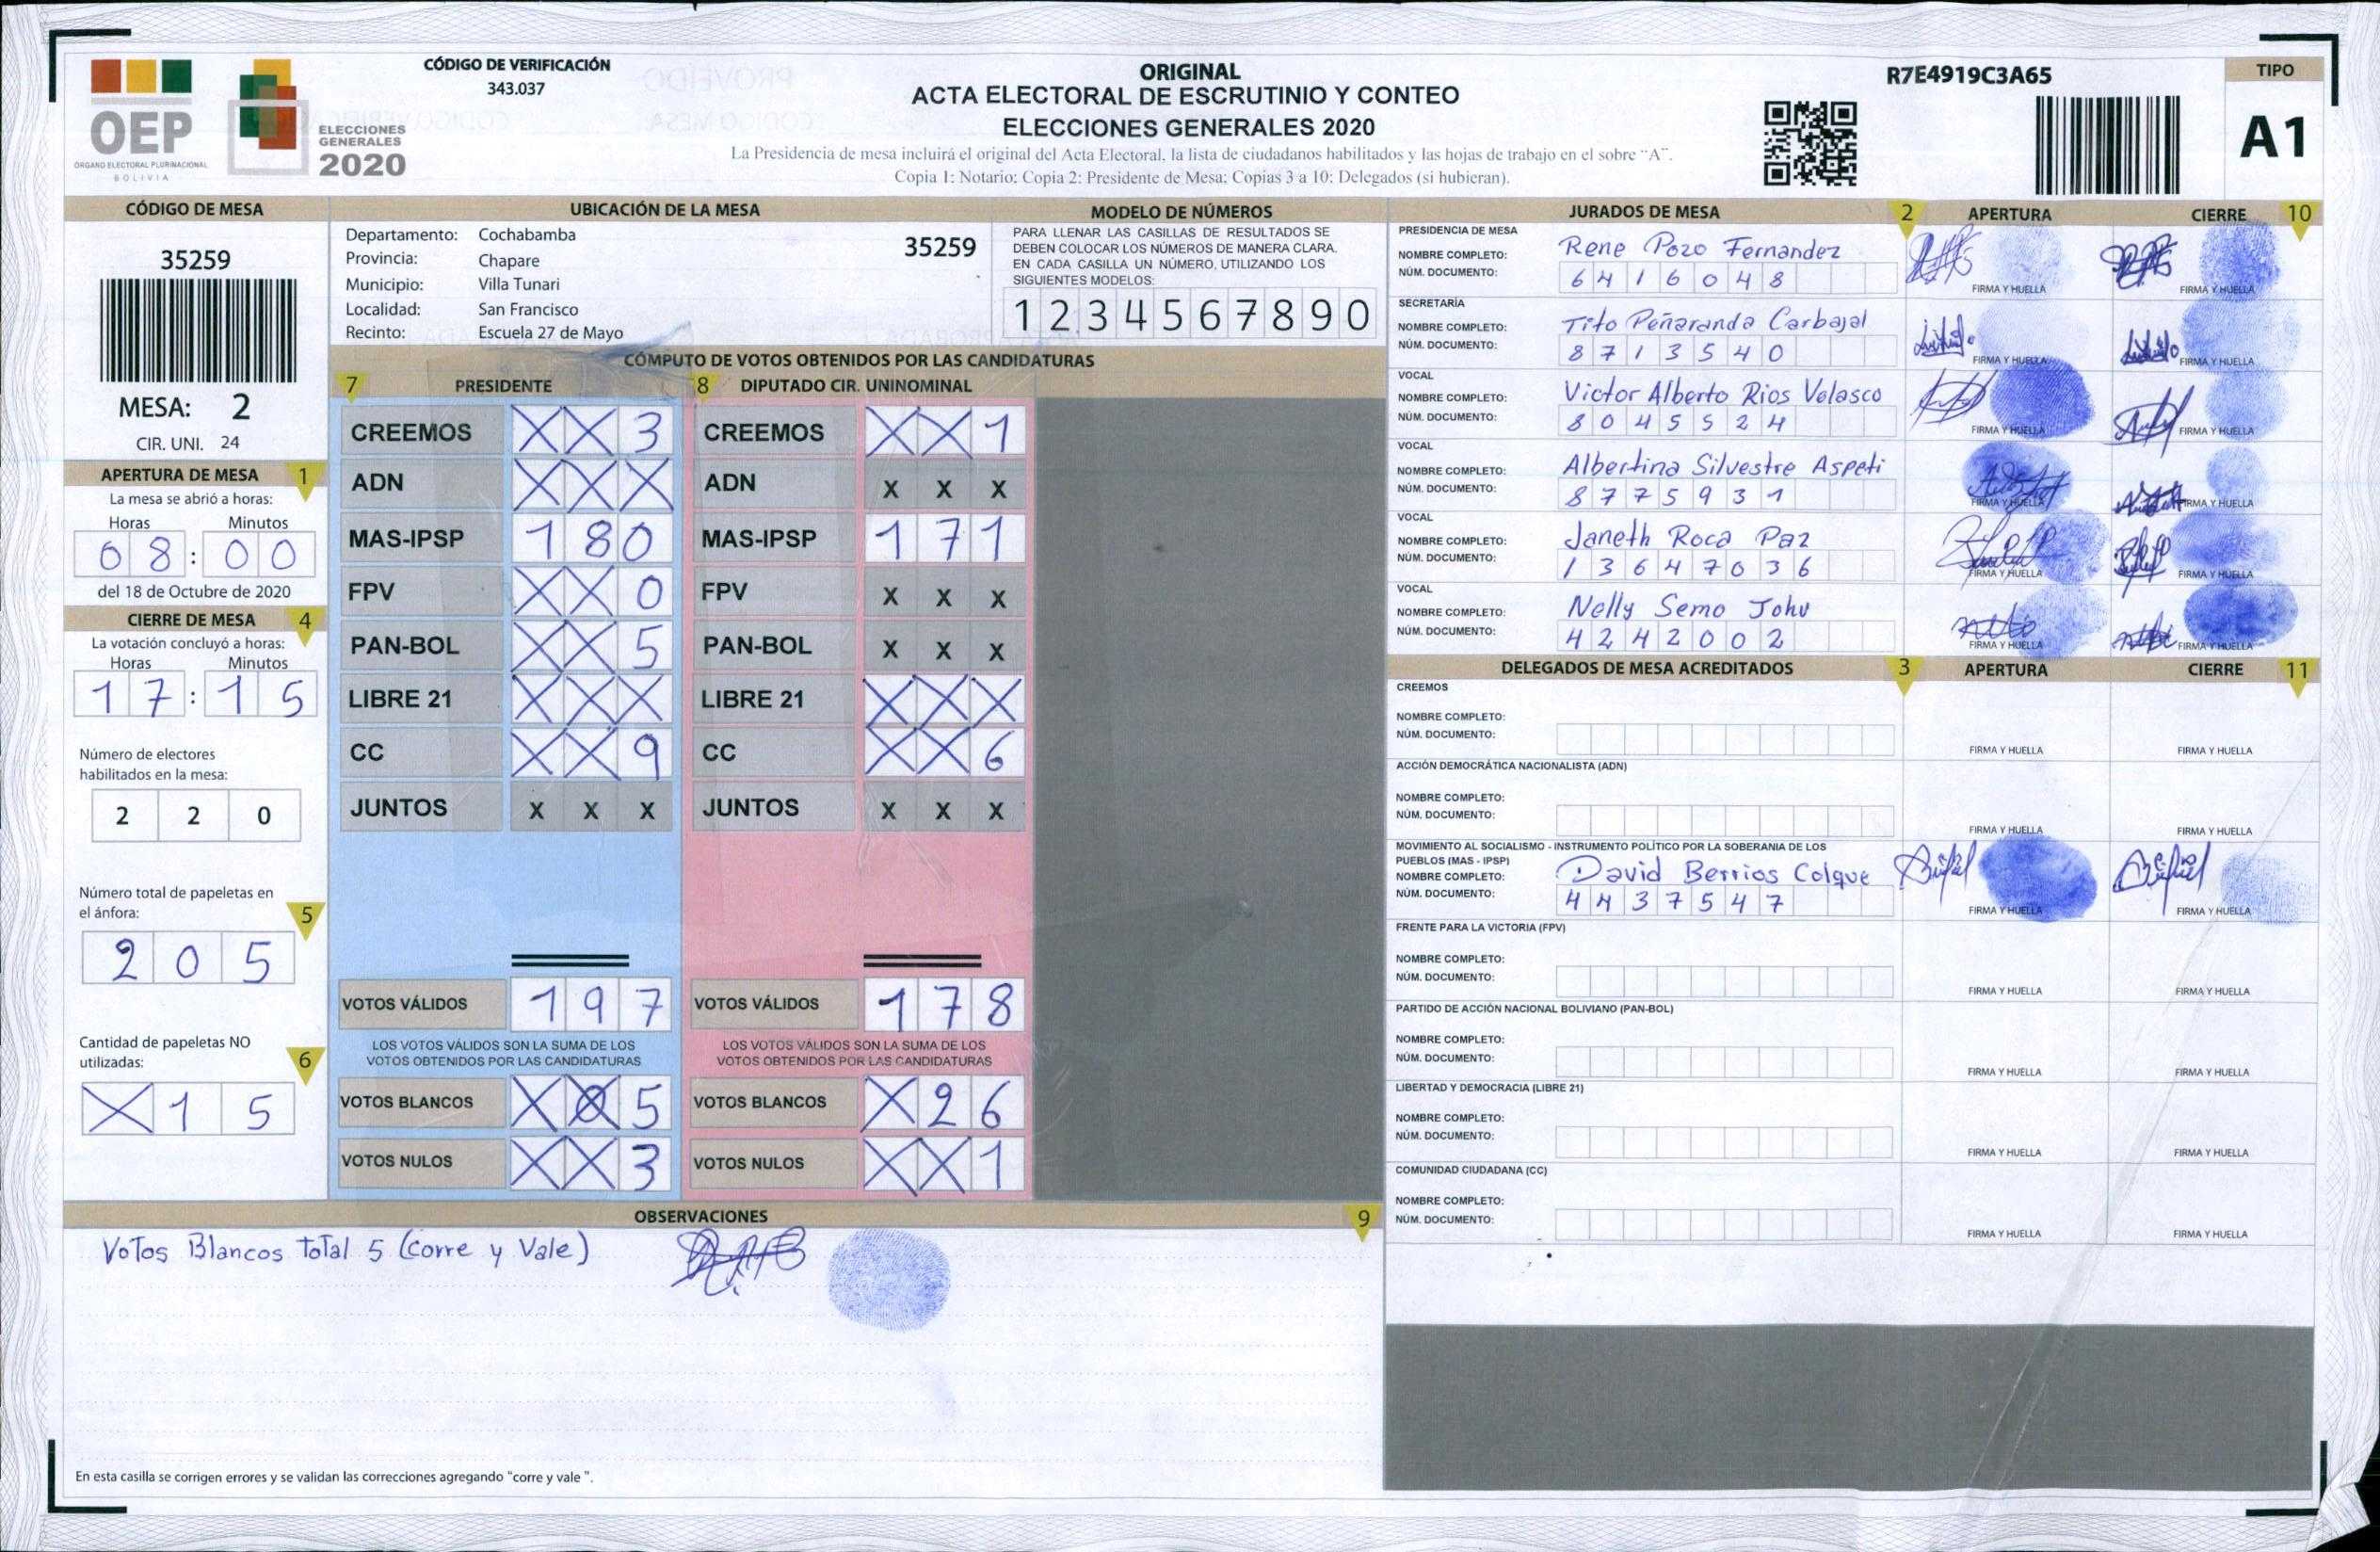 CÓDIGO DE VERIFICACIÓN
343.037
OEP
ÓRGANO ELECTORAL PLURINACIONAL
BOLIVIA
ELECCIONES
GENERALES
2020
ORIGINAL
ACTA ELECTORAL DE ESCRUTINIO Y CONTEO
ELECCIONES GENERALES 2020
La Presidencia de mesa incluirá el original del Acta Electoral, la lista de ciudadanos habilitados y las hojas de trabajo en el sobre "A".
Copia 1: Notario; Copia 2: Presidente de Mesa; Copias 3 a 10: Delegados (si hubieran).
R7E4919C3A65
TIPO
A1
CÓDIGO DE MESA
35259
MESA: 2
CIR. UNI. 24
APERTURA DE MESA 1
La mesa se abrió a horas:
Horas Minutos
08:00
del 18 de Octubre de 2020
CIERRE DE MESA 4
La votación concluyó a horas:
Horas Minutos
17:15
Número de electores
habilitados en la mesa:
2 2 0
Número total de papeletas en
el ánfora: 5
2 0 5
Cantidad de papeletas NO
utilizadas: 6
X 1 5
UBICACIÓN DE LA MESA
Departamento: Cochabamba 35259
Provincia: Chapare
Municipio: Villa Tunari
Localidad: San Francisco
Recinto: Escuela 27 de Mayo
MODELO DE NÚMEROS
PARA LLENAR LAS CASILLAS DE RESULTADOS SE
DEBEN COLOCAR LOS NÚMEROS DE MANERA CLARA.
EN CADA CASILLA UN NÚMERO, UTILIZANDO LOS
SIGUIENTES MODELOS:
1 2 3 4 5 6 7 8 9 0
CÓMPUTO DE VOTOS OBTENIDOS POR LAS CANDIDATURAS
7 PRESIDENTE 8 DIPUTADO CIR. UNINOMINAL
CREEMOS X X 3 CREEMOS X X 1
ADN X X X ADN X X X
MAS-IPSP 1 8 0 MAS-IPSP 1 7 1
FPV X X 0 FPV X X X
PAN-BOL X X 5 PAN-BOL X X X
LIBRE 21 X X X LIBRE 21 X X X
CC X X 9 CC X X 6
JUNTOS X X X JUNTOS X X X
VOTOS VÁLIDOS 1 9 7 VOTOS VÁLIDOS 1 7 8
LOS VOTOS VÁLIDOS SON LA SUMA DE LOS LOS VOTOS VÁLIDOS SON LA SUMA DE LOS
VOTOS OBTENIDOS POR LAS CANDIDATURAS VOTOS OBTENIDOS POR LAS CANDIDATURAS
VOTOS BLANCOS X X 5 VOTOS BLANCOS X 2 6
VOTOS NULOS X X 3 VOTOS NULOS X X 1
OBSERVACIONES 9
Votos Blancos total 5 (corre y Vale)
En esta casilla se corrigen errores y se validan las correcciones agregando "corre y vale ".
JURADOS DE MESA 2 APERTURA CIERRE 10
PRESIDENCIA DE MESA
NOMBRE COMPLETO: Rene Pozo Fernandez
NÚM. DOCUMENTO: 6416048 FIRMA Y HUELLA FIRMA Y HUELLA
SECRETARÍA
NOMBRE COMPLETO: Tito Peñaranda Carbajal
NÚM. DOCUMENTO: 8713540 FIRMA Y HUELLA FIRMA Y HUELLA
VOCAL
NOMBRE COMPLETO: Victor Alberto Rios Velasco
NÚM. DOCUMENTO: 8045524 FIRMA Y HUELLA FIRMA Y HUELLA
VOCAL
NOMBRE COMPLETO: Albertina Silvestre Aspeti
NÚM. DOCUMENTO: 8775931 FIRMA Y HUELLA FIRMA Y HUELLA
VOCAL
NOMBRE COMPLETO: Janeth Roca Paz
NÚM. DOCUMENTO: 13647036 FIRMA Y HUELLA FIRMA Y HUELLA
VOCAL
NOMBRE COMPLETO: Nelly Semo Johv
NÚM. DOCUMENTO: 4242002 FIRMA Y HUELLA FIRMA Y HUELLA
DELEGADOS DE MESA ACREDITADOS 3 APERTURA CIERRE 11
CREEMOS
NOMBRE COMPLETO:
NÚM. DOCUMENTO: FIRMA Y HUELLA FIRMA Y HUELLA
ACCIÓN DEMOCRÁTICA NACIONALISTA (ADN)
NOMBRE COMPLETO:
NÚM. DOCUMENTO: FIRMA Y HUELLA FIRMA Y HUELLA
MOVIMIENTO AL SOCIALISMO - INSTRUMENTO POLÍTICO POR LA SOBERANIA DE LOS
PUEBLOS (MAS - IPSP)
NOMBRE COMPLETO: David Berrios Colque
NÚM. DOCUMENTO: 4437547 FIRMA Y HUELLA FIRMA Y HUELLA
FRENTE PARA LA VICTORIA (FPV)
NOMBRE COMPLETO:
NÚM. DOCUMENTO: FIRMA Y HUELLA FIRMA Y HUELLA
PARTIDO DE ACCIÓN NACIONAL BOLIVIANO (PAN-BOL)
NOMBRE COMPLETO:
NÚM. DOCUMENTO: FIRMA Y HUELLA FIRMA Y HUELLA
LIBERTAD Y DEMOCRACIA (LIBRE 21)
NOMBRE COMPLETO:
NÚM. DOCUMENTO: FIRMA Y HUELLA FIRMA Y HUELLA
COMUNIDAD CIUDADANA (CC)
NOMBRE COMPLETO:
NÚM. DOCUMENTO: FIRMA Y HUELLA FIRMA Y HUELLA